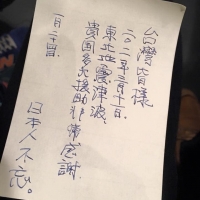 台灣皆様
二〇一一年三月十一日
東北地震津波、
貴国多大援助非常感謝
一月二十四日
日本人不忘。